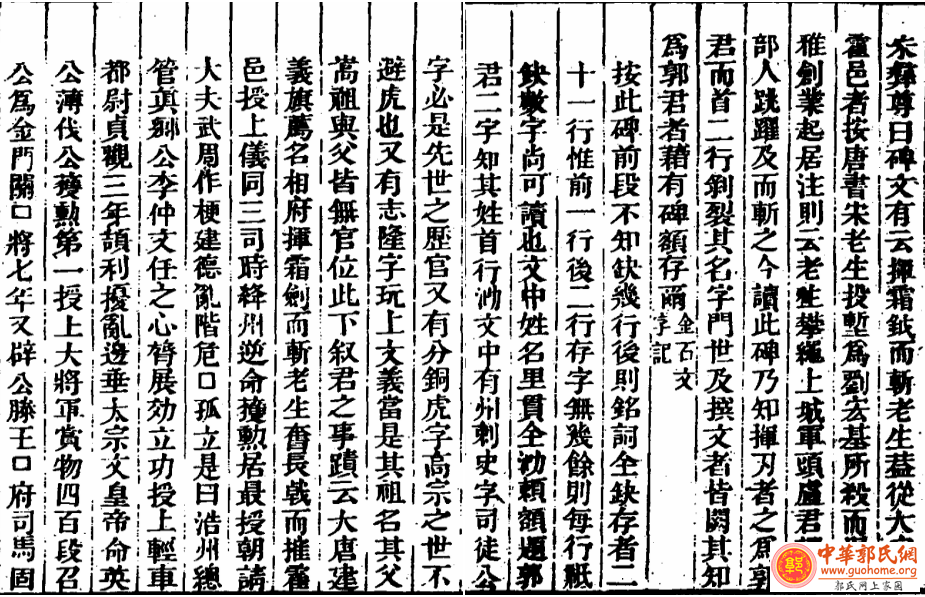 朱彝尊曰碑文有云揮霜鉞而斬老生葢從大
霍邑者按唐書宋老生投塹爲劉宏基所殺而
雅創業起居注則云老生攀繩上城軍頭盧君
部人跳躍及而斬之今讀此碑乃知揮刃者之爲郭
君而首二行剝裂其名字門世及撰文者皆闕其知
爲郭君者藉有碑額存爾金石文
字記
按此碑前段不知缺幾行後則銘詞全缺存者二
十一行惟前一行後二行存字無幾餘則每行祇
缺數字尚可讀也文中姓名里貫全泐賴額題郭
君二字知其姓首行泐文中有州刺史字司徒公
字必是先世之歷官又有分銅虎字高宗之世不
避虎也又有志隆字玩上文義當是其祖名其父
嵩祖與父皆無官位此下叙君之事蹟云大唐建
義旗薦名相府揮霜劍而斬老生奮長戟而摧霍
邑授上儀同三司時絳州逆命獲勳居最授朝請
大夫武周作梗建德亂階危□孤立是曰浩州總
管真鄉公李仲文任之心膂展効立功授上輕車
都尉貞觀三年頡利擾亂邊垂太宗文皇帝命英
公薄伐公獲勳第一授上大將軍賞物四百段召
公爲金門關□將七年又辟公滕王□府司馬固
中華郭氏網
www.guohome.org
郭氏网上家园